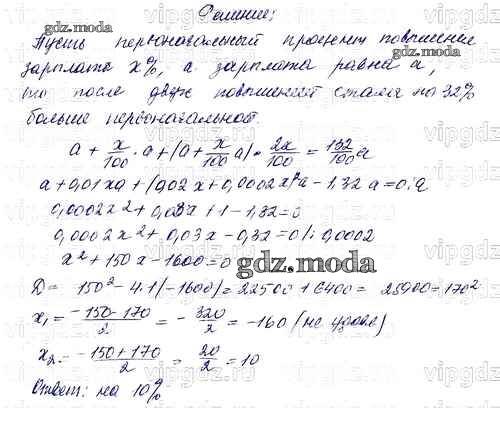 Решение:
Пусть первоначальный процент повышения
зарплаты x%, а зарплата равна a,
то после двух повышений стала на 32%
больше первоначальной.
a + x/100 · a + (a + x/100 a) · 2x/100 = 132/100 a
a + 0,01xa + (0,02x + 0,0002x²)a - 1,32a = 0 |: a
0,0002x² + 0,03x + 1 - 1,32 = 0
0,0002x² + 0,03x - 0,32 = 0 |: 0,0002
x² + 150x - 1600 = 0
gdz.moda
D = 150² - 4·1·(-1600) = 22500 + 6400 = 28900 = 170²
x₁ = (-150-170)/2 = -320/2 = -160 (не удовл)
x₂ = (-150+170)/2 = 20/2 = 10
Ответ: на 10%